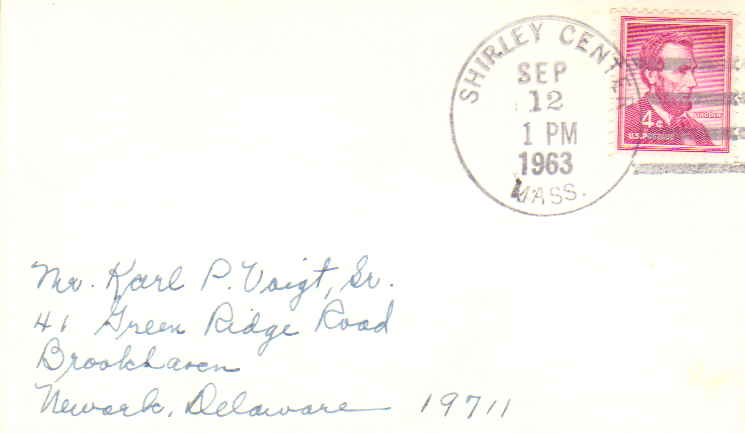 SHIRLEY CENTER
SEP
12
1 PM
1963
MASS.
LINCOLN
4¢
U.S. POSTAGE
Mr. Karl P. Voigt, Sr.
41 Green Ridge Road
Brookhaven
Newark, Delaware 19711